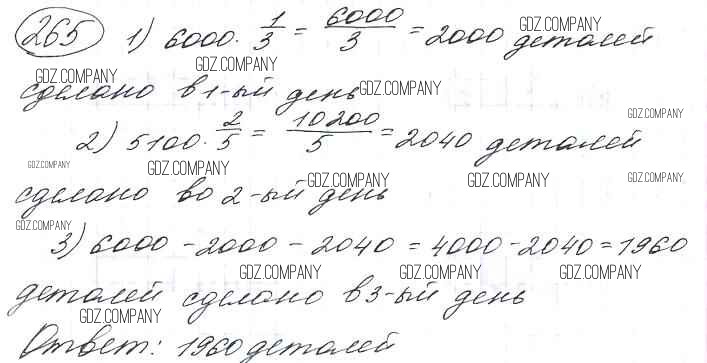 265 1) 6000 · 1/3 = 6000/3 = 2000 деталей
GDZ.COMPANY
GDZ.COMPANY GDZ.COMPANY
сделано в 1-ый день GDZ.COMPANY
2) 5100 · 2/5 = 10200/5 = 2040 деталей
GDZ.COMPANY
GDZ.COMPANY GDZ.COMPANY
GDZ.COMPANY GDZ.COMPANY GDZ.COMPANY
сделано во 2-ый день
GDZ.COMPANY
3) 6000 - 2000 - 2040 = 4000 - 2040 = 1960
GDZ.COMPANY GDZ.COMPANY GDZ.COMPANY
деталей сделано в 3-ый день
GDZ.COMPANY
Ответ: 1960 деталей